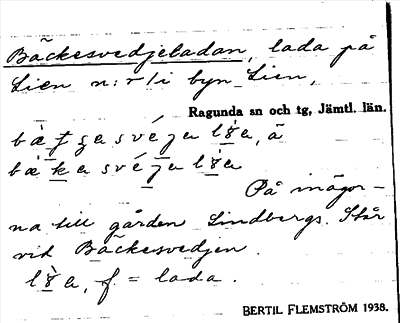 Bäckesvedjeladan, lada på
Lien n:r 1 i byn Lien,
Ragunda sn och tg, Jämtl. län.
svéja
svéja
På inägor-
na till gården Lindbergs. Står
vid Bäckesvedjen.
f = lada.
BERTIL FLEMSTRÖM 1938.